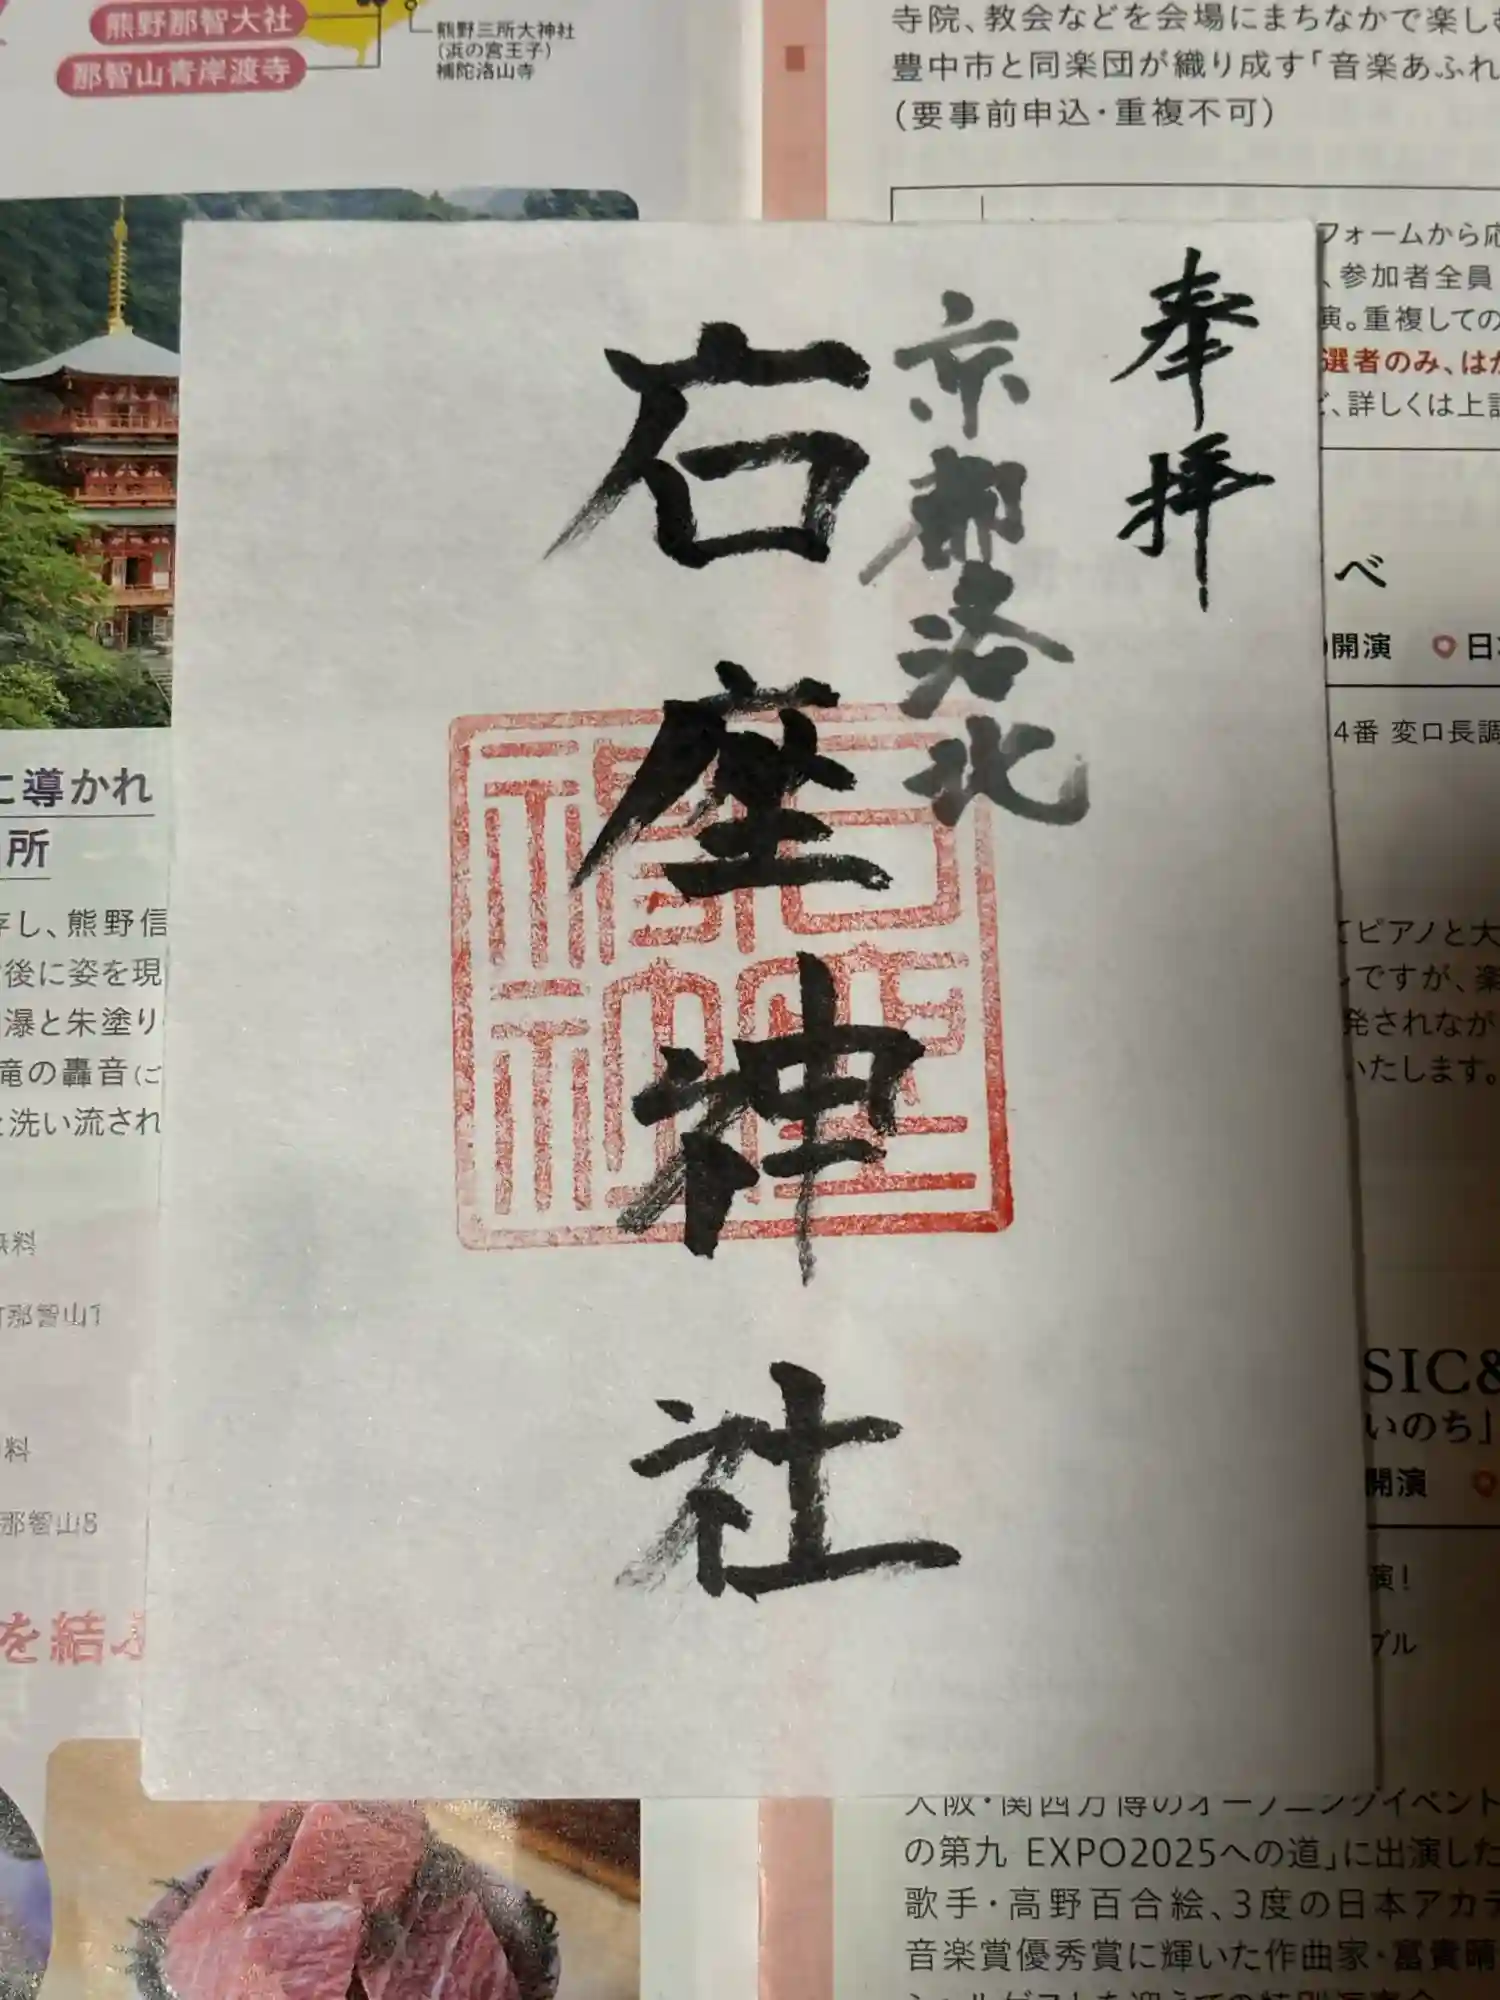 熊野那智大社
那智山青岸渡寺
熊野三所大神社
(浜の宮王子)
補陀洛山寺
寺院、教会などを会場にまちなかで楽し
豊中市と同楽団が織り成す「音楽あふれ
(要事前申込・重複不可)
奉拝
京都洛北
石座神社
フォームから応
、参加者全員
演。重複しての
選者のみ、はが
、詳しくは上記
べ
開演
日本
4番 変ロ長調
てピアノと大
ですが、楽
発されなが
いたします。
SIC&
いのち」
開演
演!
ブル
に導かれ
所
存し、熊野信
背後に姿を現
瀑と朱塗り
竜の轟音(ご
と洗い流され
無料
那智山1
料
那智山8
を結ぶ
大阪・関西万博のオープニングイベント
の第九 EXPO2025への道」に出演した
歌手・高野百合絵、3度の日本アカデ
音楽賞優秀賞に輝いた作曲家・富貴晴